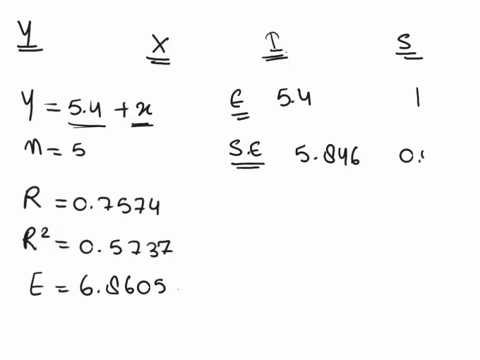 Y X I S
Y = 5.4 + x E 5.4 1
n = 5 S.E 5.846
R = 0.7574
R² = 0.5737
E = 6.8605